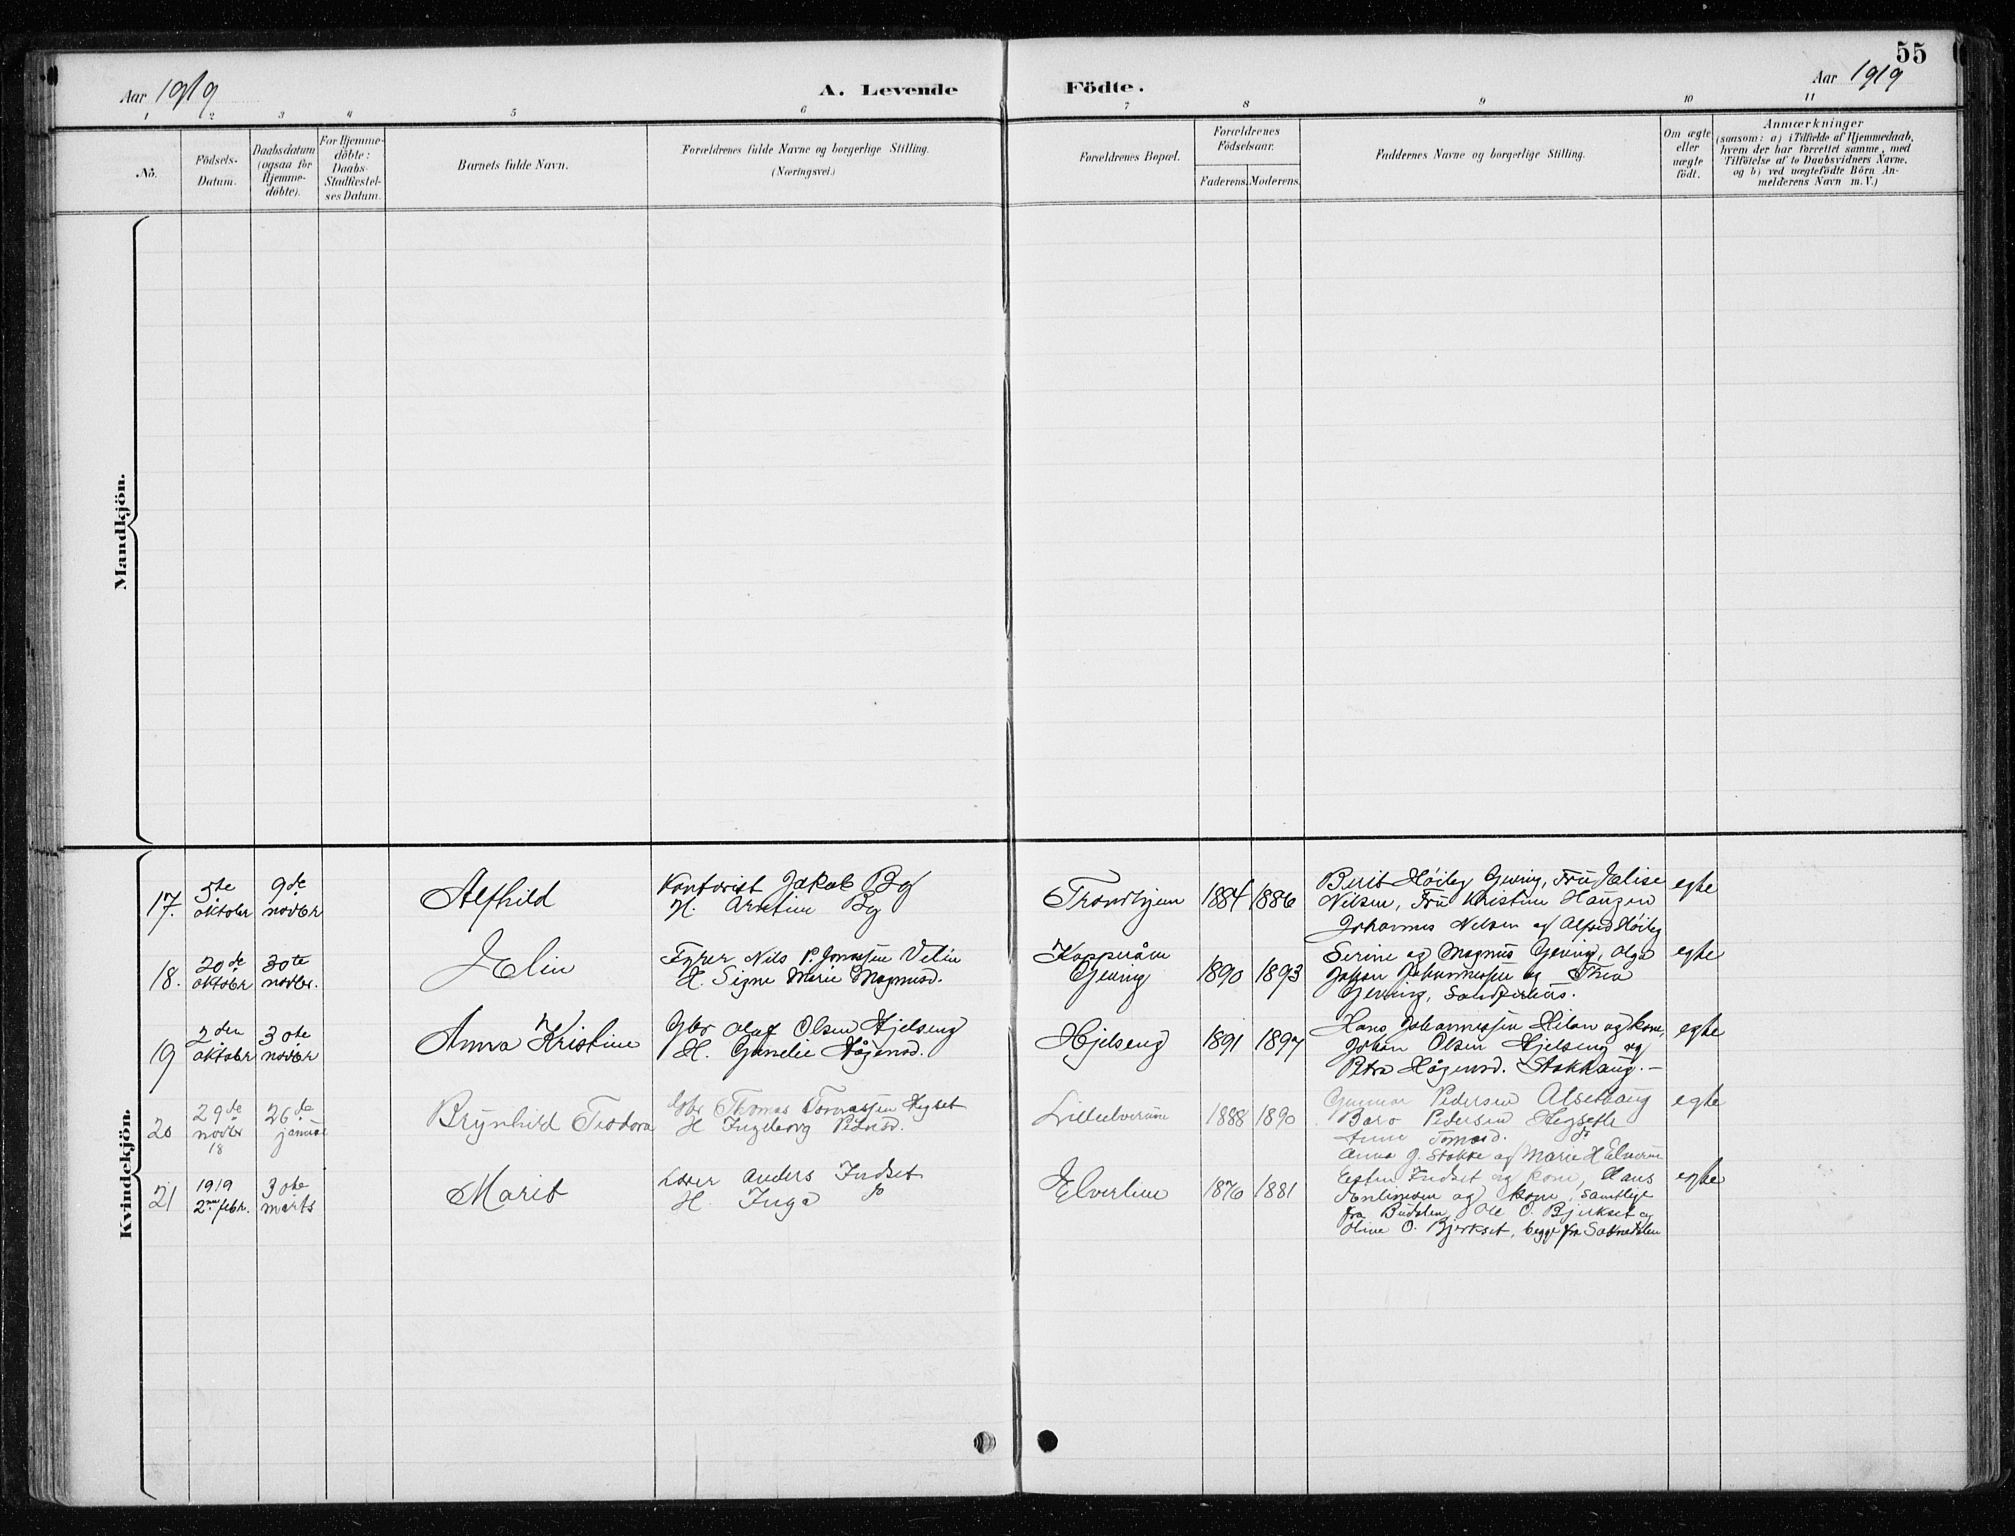 55
Aar 1919
A. Levende Födte.
Aar 1919
1 2 3 4 5 6 7 8 9 10 11
No.
Födsels-
Datum.
Daabsdatum
(ogsaa for
Hjemme-
döbte).
For Hjemme-
döbte:
Daabs-
Stadfæstel-
ses Datum.
Barnets fulde Navn.
Forældrenes fulde Navne og borgerlige Stilling.
(Næringsvei.)
Forældrenes Bopæl.
Forældrenes
Födselsaar.
Faderens. Moderens.
Faddernes Navne og borgerlige Stilling.
Om ægte
eller
uægte
födt.
Anmærkninger
(saasom: a) i Tilfælde af Hjemmedaab,
hvem der har forrettet samme, med
Tilföielse af to Daabsvidners Navne.
og b) ved uægtefödte Börn An-
melderens Navn m. V.)
Mandkjön.
Kvindekjön.
17.
5te
oktober
9de
novbr
Alfhild
Kontorist Jakob By
H. By
Trondhjem
1884
1886
Berit Höiby Gevring, Fru Elise
Nilsen, Fru Kristine Hansen
Johannes Nilsen og Alfred Höiby
egte
18.
20de
oktobr
30te
novbr.
Elin
Nils P. Jonassen
H. Signe Marie Magnusd.
Kopperåen
Gevring
1890
1893
Serine og Magnus Gevring, Olga
Johan Johannessen og Thea
Gevring,
egte
19
2den
oktobr
30te
novbr
Anna Kristine
Gbr Olaf Olsen Hjelseng
H.
Hjelseng
1891
1897
Hans Johannessen Hilan og kone,
Johan Olsen Hjelseng og
Petra Stokhaug.-
egte
20
29de
novbr
18
26de
januar
Brynhild Teodora
Gbr Thomas Tomassen Hegset
H. Ingeborg Pedersd.
Lilleelverum
1888
1890
Gunnar Pedersen Alsethaug
Baro Pedersen Hegsetle
Anne Tomasd. do
Anna J. Stokke og Marie H Elverum
egte
21
1919
2den febr.
30te
marts
Marit
Lærer Anders Indset
H. Inga do
Elverhue
1876
1881
Esten Indset og kone, Hans
og kone, samtlige
fra Budalen, Ole O. Bjerkset og
Oline O. Bjerkset, begge fra Soknedalen
egte